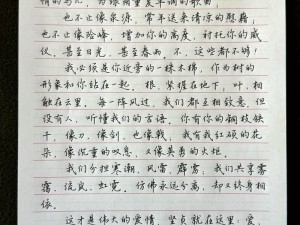 情的鸟儿，为绿荫重复单调的歌曲；
也不止像泉源，常年送来清凉的慰藉；
也不止像险峰，增加你的高度，衬托你的威
仪。甚至日光，甚至春雨。不，这些都不够！
我必须是你近旁的一棵木棉，作为树的
形象和你站在一起。根，紧握在地下，叶，相
触在云里。每一阵风过，我们都互相致意，但
没有人，听懂我们的言语。你有你的铜枝铁
干，像刀，像剑，也像戟，我有我红硕的花
朵，像沉重的叹息，又像英勇的火炬。
我们分担寒潮、风雷、霹雳；我们共享雾
霭、流岚、虹霓，仿佛永远分离，却又终身相
依。
这才是伟大的爱情，坚贞就在这里：爱，